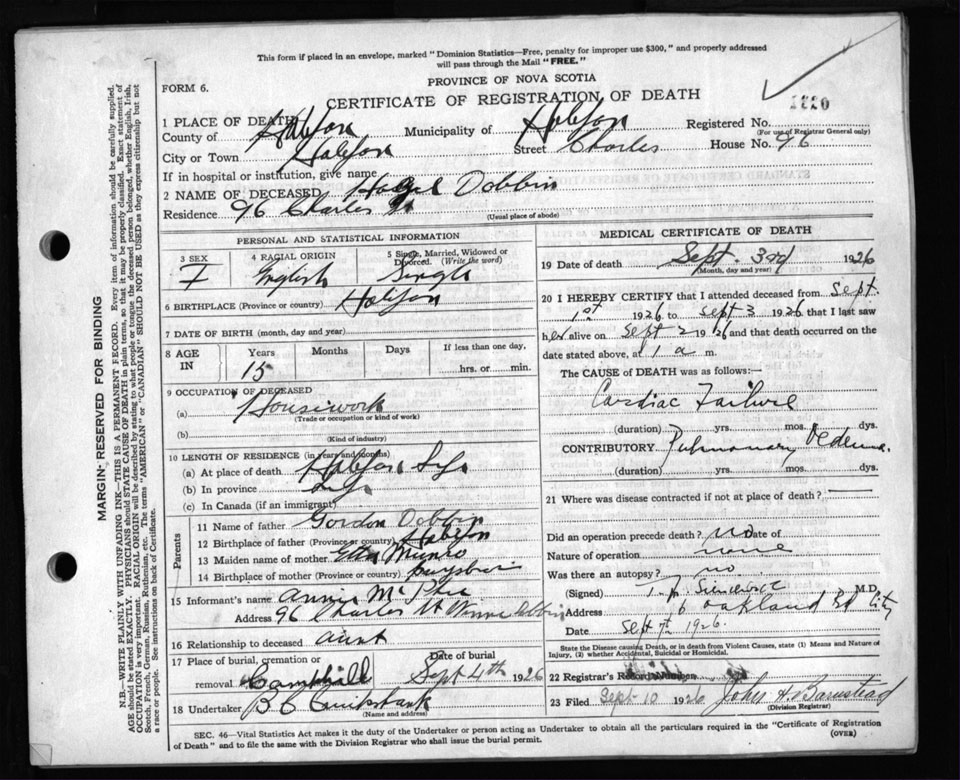 This form if placed in an envelope, marked "Dominion Statistics—Free, penalty for improper use $300," and properly addressed
will pass through the Mail "FREE."
PROVINCE OF NOVA SCOTIA
FORM 6.
CERTIFICATE OF REGISTRATION OF DEATH
1 PLACE OF DEATH
County of Halifax Municipality of Halifax Registered No.
(For use of Registrar General only)
City or Town Halifax Street Charles House No. 96
If in hospital or institution, give name
2 NAME OF DECEASED Hazel Dobbin
Residence 96 Charles St
(Usual place of abode)
PERSONAL AND STATISTICAL INFORMATION
3 SEX 4 RACIAL ORIGIN 5 Single, Married, Widowed or Divorced. (Write the word)
F English Single
6 BIRTHPLACE (Province or country) Halifax
7 DATE OF BIRTH (month, day and year)
8 AGE IN Years Months Days If less than one day,
15 hrs. or min.
9 OCCUPATION OF DECEASED
(a) Housework
(Trade or occupation or kind of work)
(b)
(Kind of industry)
10 LENGTH OF RESIDENCE (in years and months)
(a) At place of death Halifax Life
(b) In province Life
(c) In Canada (if an immigrant)
Parents
11 Name of father Gordon Dobbin
12 Birthplace of father (Province or country) Halifax
13 Maiden name of mother Etta Munro
14 Birthplace of mother (Province or country)
15 Informant's name Annie McPhee
Address 96 Charles St
16 Relationship to deceased Aunt
17 Place of burial, cremation or removal Camphill Date of burial Sept 4th 1926
18 Undertaker Cruikshank
(Name and address)
MEDICAL CERTIFICATE OF DEATH
19 Date of death Sept. 3rd 1926
(Month, day and year)
20 I HEREBY CERTIFY that I attended deceased from Sept.
1st 1926 to Sept 3 1926 that I last saw
her alive on Sept 2 1926 and that death occurred on the
date stated above, at 1 a m.
The CAUSE of DEATH was as follows:—
Cardiac Failure
(duration) yrs. mos. dys.
CONTRIBUTORY Pulmonary Oedema
(duration) yrs. mos. dys.
21 Where was disease contracted if not at place of death? —
Did an operation precede death? no Date of
Nature of operation none
Was there an autopsy? no
(Signed) M.D.
Address 6 Oakland Rd City
Date Sept 7th 1926.
State the Disease causing Death, or in death from Violent Causes, state (1) Means and Nature of
Injury, (2) whether Accidental, Suicidal or Homicidal.
22 Registrar's Record Number
23 Filed Sept 10 1926 John H. Barnstead
(Division Registrar)
SEC. 46—Vital Statistics Act makes it the duty of the Undertaker or person acting as Undertaker to obtain all the particulars required in the "Certificate of Registration
of Death" and to file the same with the Division Registrar who shall issue the burial permit. (OVER)
MARGIN—RESERVED FOR BINDING
N.B.—WRITE PLAINLY WITH UNFADING INK—THIS IS A PERMANENT RECORD. Every item of information should be carefully supplied.
AGE should be stated EXACTLY. PHYSICIANS should STATE CAUSE OF DEATH in plain terms, so that it may be properly classified. Exact statement of
OCCUPATION is very important. RACIAL ORIGIN will be described by stating to what people or tongue the deceased person belonged, whether English, Irish,
Scotch, French, German, Russian, Ruthenian, etc. The terms "AMERICAN" or "CANADIAN" SHOULD NOT BE USED as they express citizenship but not
a race or people. See instructions on back of Certificate.